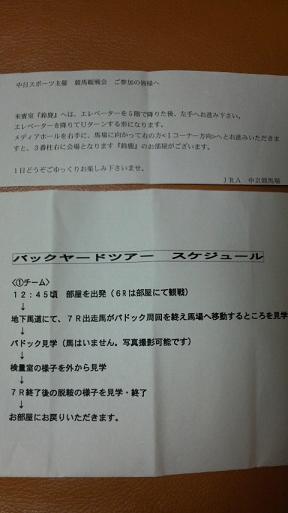 中日スポーツ主催　競馬観戦会　ご参加の皆様へ
来賓室『鈴鹿』へは、エレベーターを５階で降りた後、左手へお進み下さい。
エレベーターを降りてＵターンする形になります。
メディアホールを右手に、馬場に向かって右の方<１コーナー方向>へとお進みいただきま
すと、３番柱右に会場となります『鈴鹿』のお部屋がございます。
１日どうぞごゆっくりお楽しみ下さいませ。
ＪＲＡ　中京競馬場
バックヤードツアー　スケジュール
<①チーム>
１２：４５頃　部屋を出発（６Ｒは部屋にて観戦）
↓
地下馬道にて、７Ｒ出走馬がパドック周回を終え馬場へ移動するところを見学
↓
パドック見学（馬はいません。写真撮影可能です）
↓
検量室の様子を外から見学
↓
７Ｒ終了後の脱鞍の様子を見学・終了
↓
お部屋にお戻りいただきます。